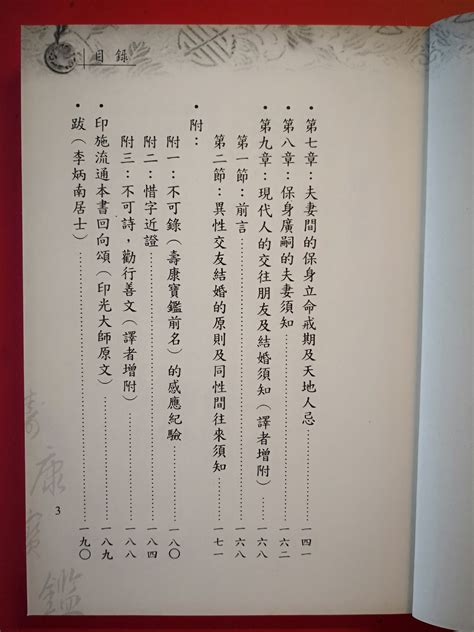 目錄
•第七章：夫妻間的保身立命戒期及天地人忌……一四一
•第八章：保身廣嗣的夫妻須知……一六二
•第九章：現代人的交往朋友及結婚須知（譯者增附）……一六八
第一節：前言……一六八
第二節：異性交友結婚的原則及同性間往來須知……一七一
•附：
附一：不可錄（壽康寶鑑前名）的感應紀驗……一八〇
附二：惜字近證……一八四
附三：不可詩，勸行善文（譯者增附）……一八八
•印施流通本書回向頌（印光大師原文）……一八九
•跋（李炳南居士）……一九〇
壽康寶鑑
3